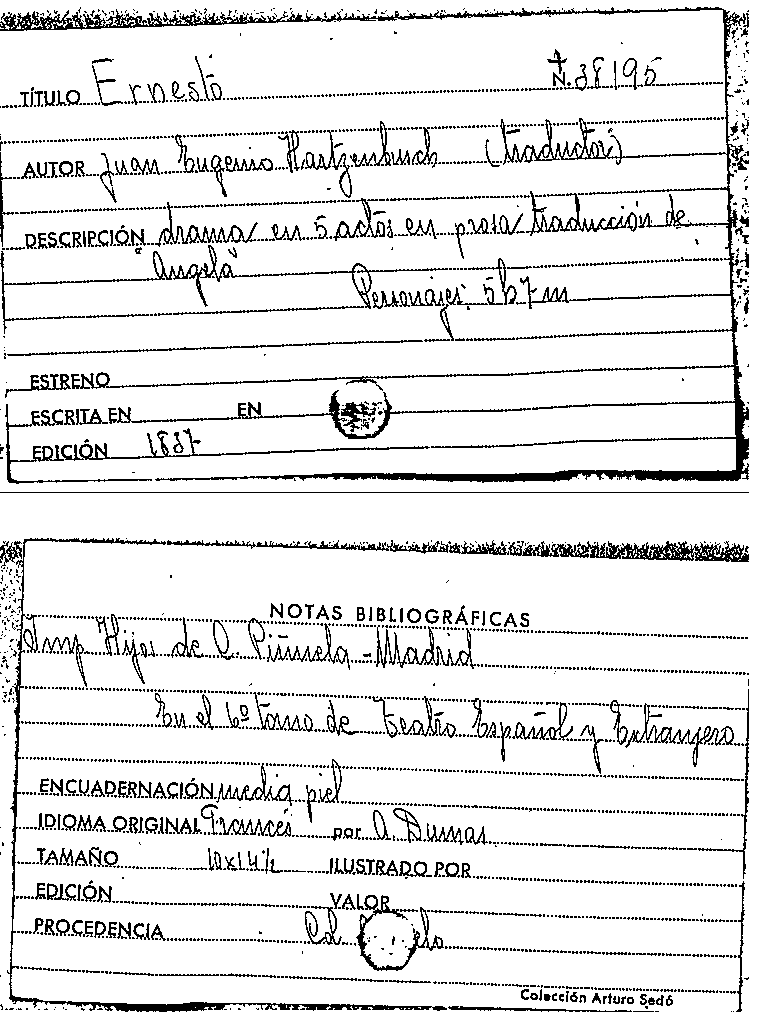 TÍTULO Ernesto N. 38195
AUTOR Juan Eugenio Hartzenbusch (traductor)
DESCRIPCIÓN drama en 5 actos en prosa traducción de
"Angela"
Personajes: 5h7m
ESTRENO
ESCRITA EN EN
EDICIÓN 1837
NOTAS BIBLIOGRÁFICAS
Imp Hijos de C. Piñuela - Madrid
En el 6º tomo de Teatro Español y Extranjero
ENCUADERNACIÓN media piel
IDIOMA ORIGINAL Francés por A. Dumas
TAMAÑO 10x14½ ILUSTRADO POR
EDICIÓN VALOR
PROCEDENCIA Col.
Colección Arturo Sedó